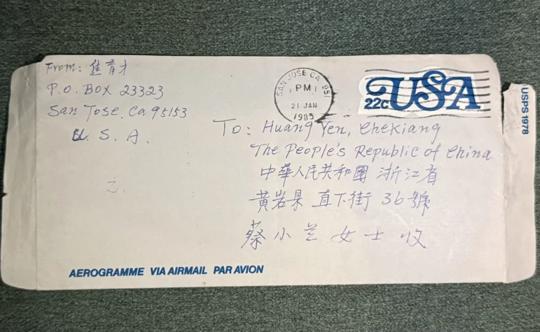 From: 焦育才
P.O. BOX 23323
San Jose, Ca 95153
U. S. A.
SAN JOSE CA 951
PM
21 JAN
1985
22c USA
USPS 1978
To: Huang Yen, Chekiang
The People's Republic of China
中華人民共和國 浙江省
黃岩县 直下街 36號
蔡小兰女士收
AEROGRAMME VIA AIRMAIL PAR AVION